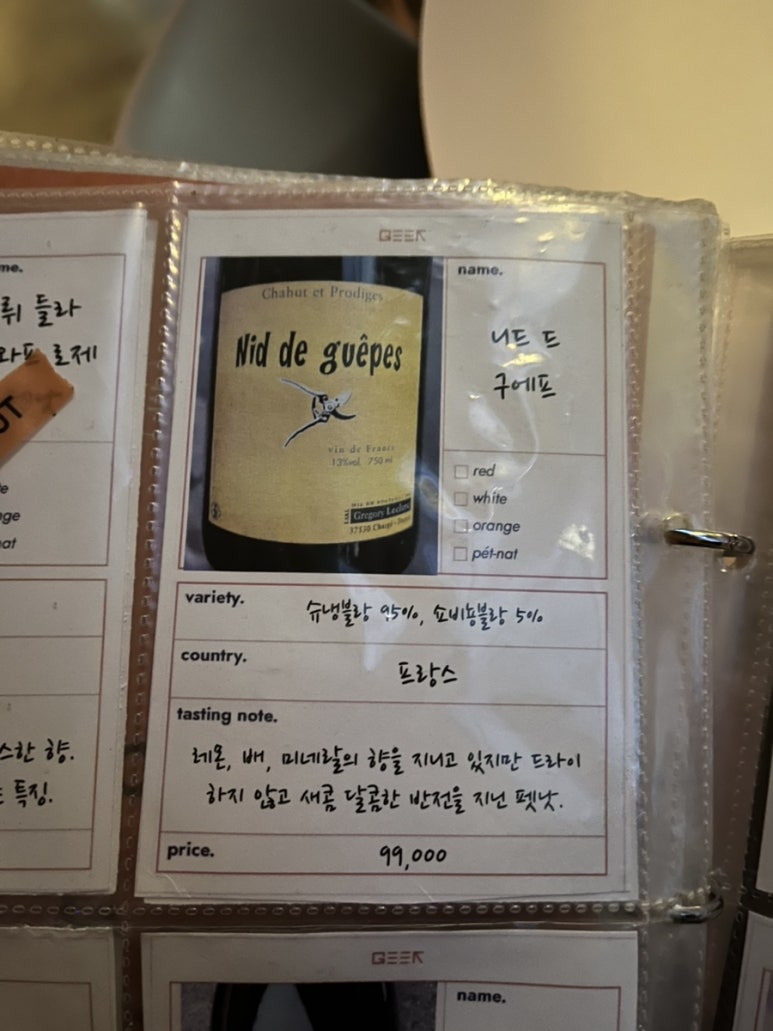 GEEK
me.
뤼 들라
로제
ge
at
스한 향.
특징.
Chahut et Prodiges
Nid de guêpes
vin de France
13%vol. 750 ml
Gregory Leclerc
name.
니드 드
구에프
red
white
orange
pét-nat
variety.
슈냉블랑 95%, 쇼비뇽블랑 5%
country.
프랑스
tasting note.
레몬, 배, 미네랄의 향을 지니고 있지만 드라이
하지 않고 새콤 달콤한 반전을 지닌 펫낫.
price.
99,000
GEEK
name.